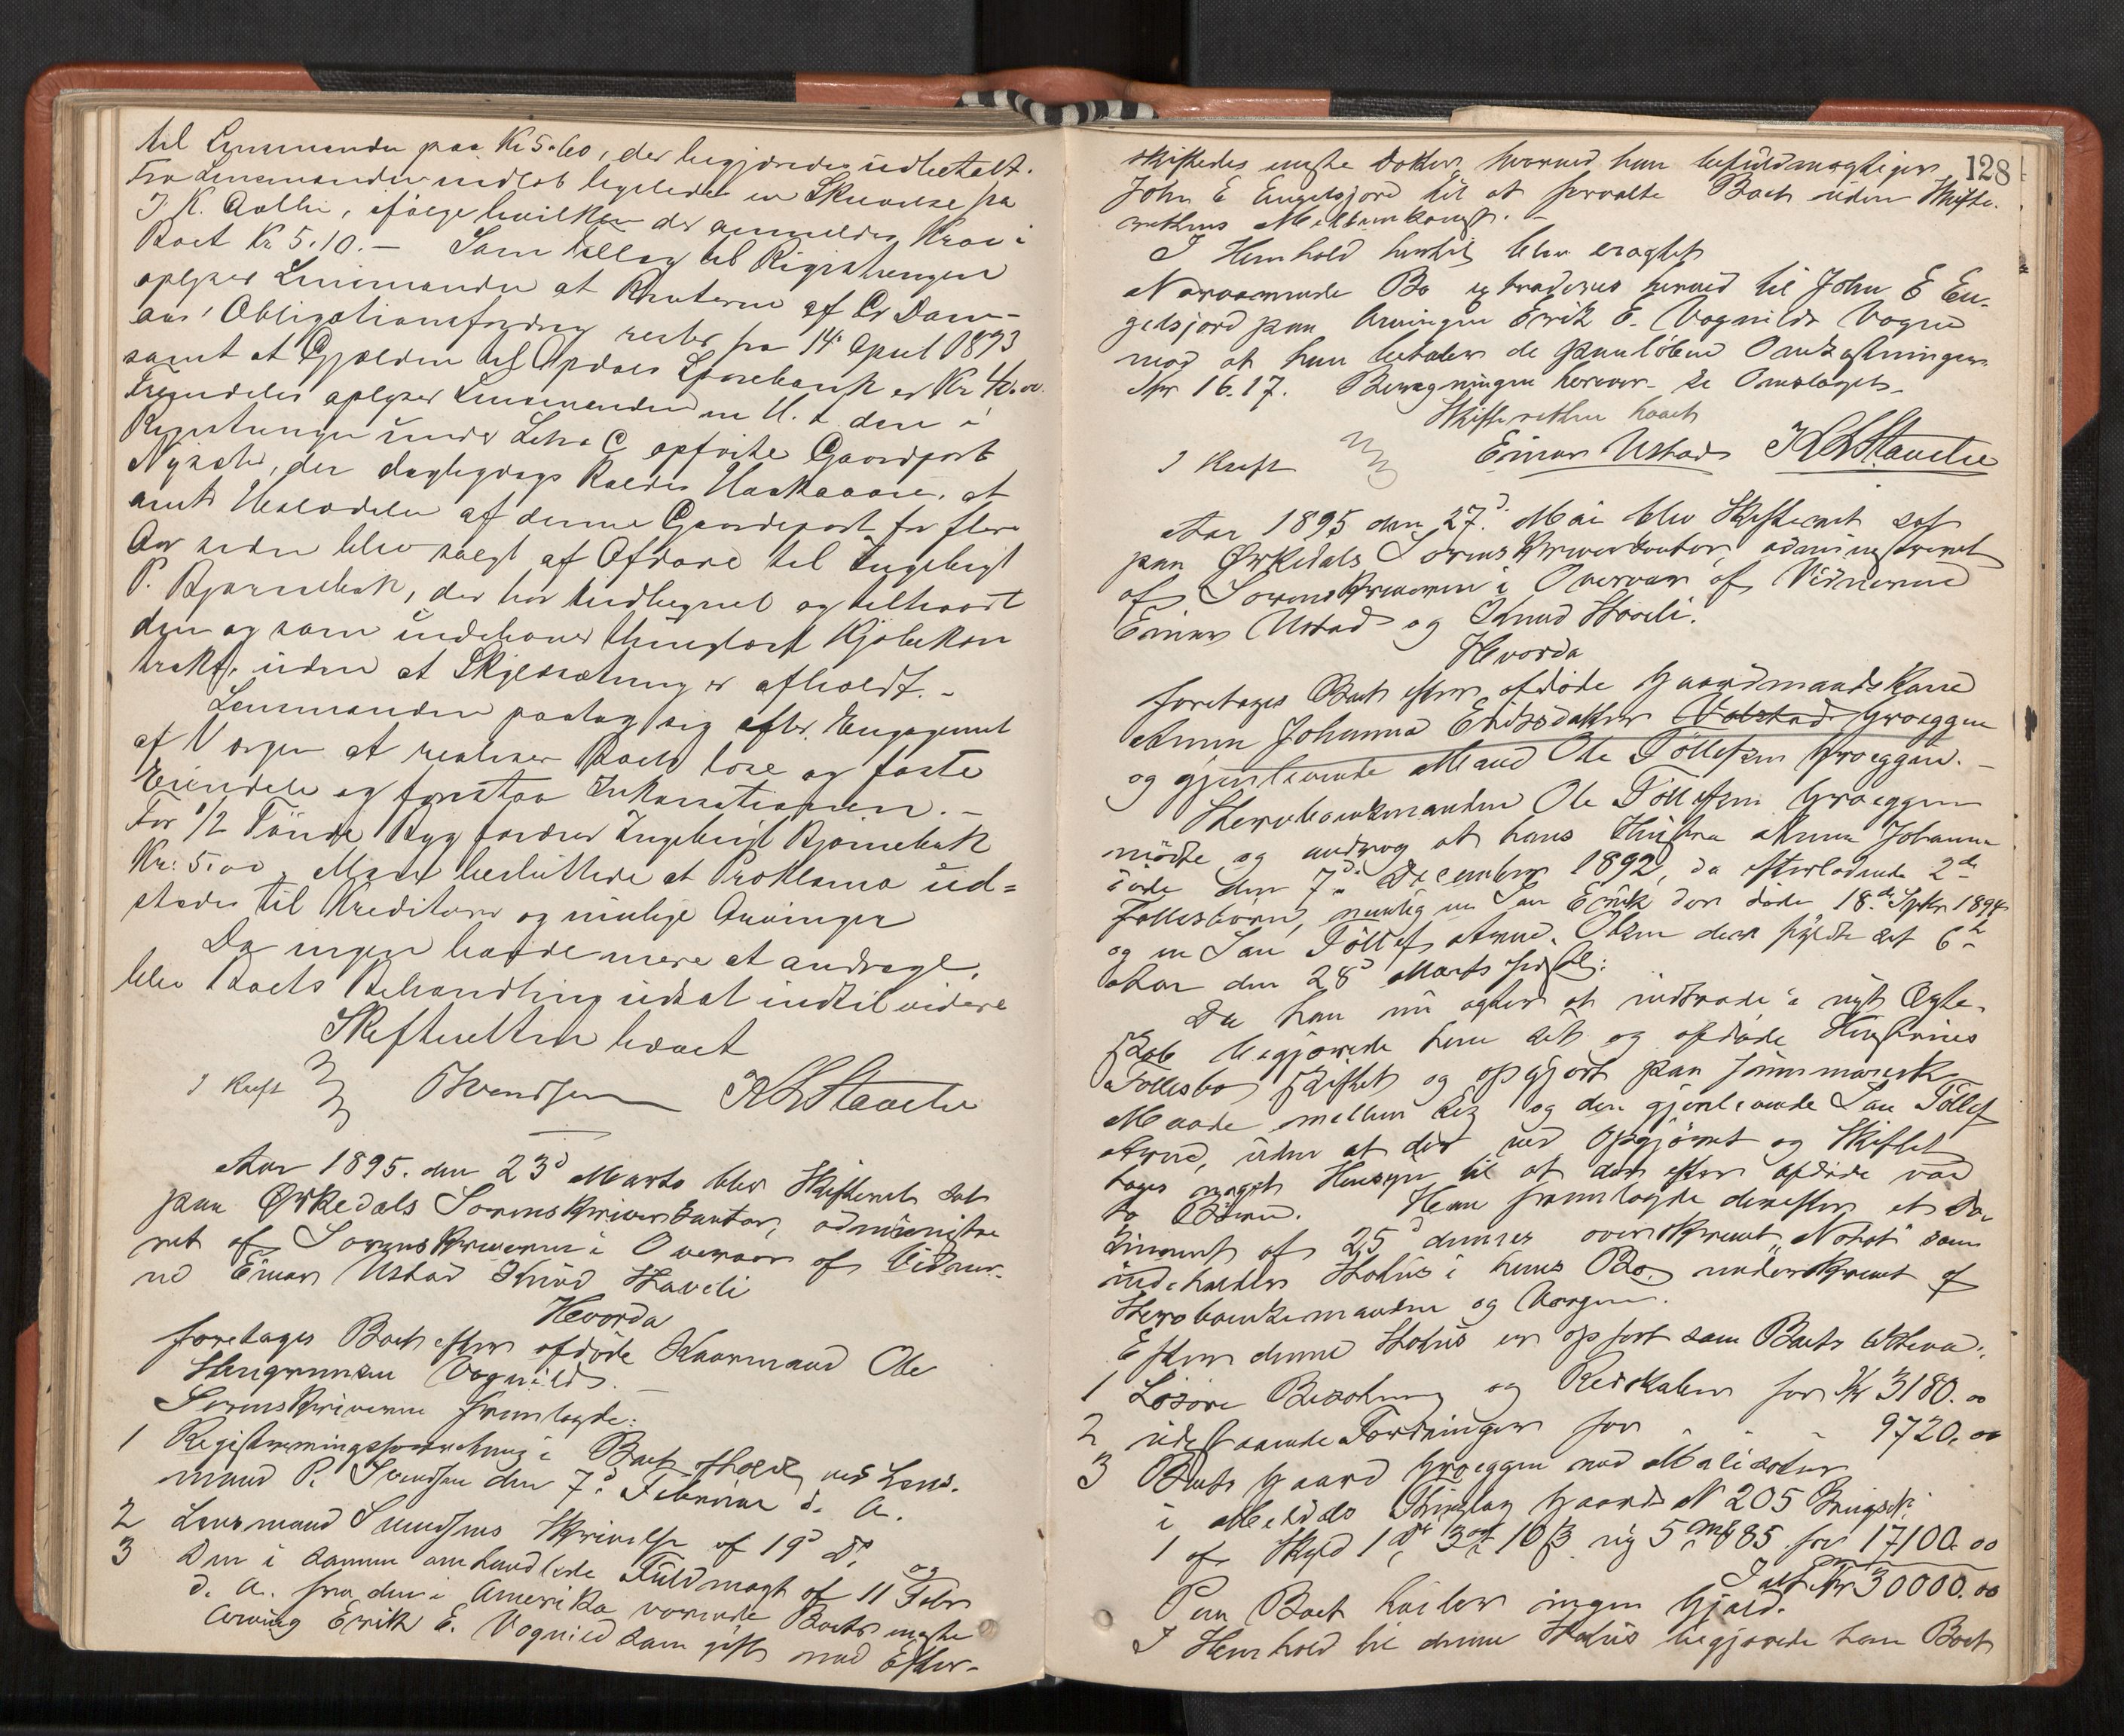 til Lensmanden paa Kr 5.60, der begjæredes udbetalt.
Fra Lensmanden indløb ligeledes en Skrivelse fra
I K. Aalbu, ifølge hvilken der anmeldes Krav i
Boet Kr 5.10. – Som Tillæg til Registreringen
oplyser Lensmanden at Renterne af
Obligationsfordring rester fra 14 April 1893
samt at Gjælden til Opdals Sparebank er Kr 40.00.
Fremdeles oplyser Lensmanden m H. t. den i
Registeringen under Litra C opførte Gaardpart
Nysæter, der dagligdags kaldes Haakaaran, at
af denne Gaardepart for flere
Aar siden blev solgt af Afdøde til Ingebrigt
P. Bjørnebak, der har indhegnet og tilhævdt
den og som indehaver thinglæst Kjøbekon
trakt, uden at Skjelsætning er afholdt. –
Lensmanden paatog sig efter Engagement
af Værgen at realisere Boets løse og faste
Eiendele og forestaa Inkassationen. –
For 1/2 Tønde Byg fordrer Ingebrigt Bjørnebak
Kr: 5.00. Man besluttede at Proklama ud=
stedes til Kreditorer og mulige Arvinger
Da ingen havde mere at andrage,
blev Boets Behandling udsat indtil videre
Skifteretten hævet
I Kraft
Svendsen K L Stavelie
Aar 1895. den 23d Marts blev Skifteret sat
paa Ørkedals Sorenskriverkontor, administre
ret af Sorenskriveren i Overvær af Vidner-
ne Einar Ustad Knud Haveli
Hvorda
foretages Boet efter afdøde Kaarmand Ole
Vognild. –
Sorenskriveren fremlagde:
1 Registreringsforretning i Boet afholdt ved Lens-
mand P. Svendsen den 7d Februar d. A.
2 Lensmand Svendsens Skrivelse af 19d Ds og
3 Den i samme omhandlede Fuldmagt af 11 Febr
d. A. fra den i Amerika værende Boets eneste
Arving Erik E. Vognild som gift med Efter-
128
skiftedes eneste Datter, hvorved han befuldmægtiger
John E Engelsjord til at forvalte Boet uden Skifte-
rettens Mellemkomst. –
I Henhold hertil blev eragtet
Nærværende Bo extraderes herved til John E En-
gelsjord paa Arvingen Erik E. Vognilds Vegne
mod at han betaler de paaløbne Omkostninger
Kr 16.17. Beregningen herover se Omslaget. –
Skifteretten hævet
I Kraft
Einar Ustad K L Stavelie
Aar 1895 den 27d Mai blev Skifteret sat
paa Ørkedals Sorenskriverkontor, administreret
af Sorenskriveren i Overvær af Vidnerne
Einar Ustad og Knud Haveli.
Hvorda
foretages Boet efter afdøde Gaardmandskone
Anne Johanna Eriksdatter Volstad Grøggen
og gjenlevende Mand Ole Tøllefsen Grøggen. –
Stervboenkemanden Ole Tøllefsen Grøggen
mødte og androg at hans Hustru Anne Johanna
døde den 7d December 1892, da efterladende 2de
Fællesbørn, nemlig en Søn Erik der døde 18de Septbr 1894
og en Søn Tøllef Arne Olsen der fyldte sit 6te
Aar den 28d Marts sidstl:
Da han nu agter at indtræde i nyt Ægte-
skab begjærede han sit og afdøde Hustrues
Fællesbo skiftet og opgjort paa summarisk
Maade mellem sig og den gjenlevende Søn Tøllef
Arne, uden at der ved Opgjøret og Skiftet
tages noget Hensyn til at der efter Afdøde var
to Børn. Han fremlagde derefter et Do-
kument af 25d dennes overskrevet "Notat" som
indeholder Status i hans Bo, underskrevet af
Stervboenkemanden og Værgen.
Efter denne Status er opført som Boets Aktiva:
1 Løsøre Besætning og Redskaber for Kr 3180.00
2 udestaaende Fordringer for " 9720.00
3 Boets Gaard Grøggen med
i Meldals Thinglag Gaards N 205 Brugs N:
1 af Skyld 1 Dr 3 ort 10 ß ny 5 mk 85 for 17100.00
Ialt Kr 30000.00
Paa Boet hviler ingen Gjæld.
I Henhold til denne Status begjærede han Boet